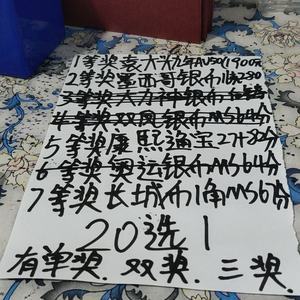 1等奖袁大头九年AU50/1900元
2等奖墨西哥银币1盎280
3等奖大力神银币
4等奖双凤银币MS64分
5等奖康熙通宝27+80分
6等奖奥运银币MS64分
7等奖长城币1角MS67分
20选1
有单奖.双奖.三奖.